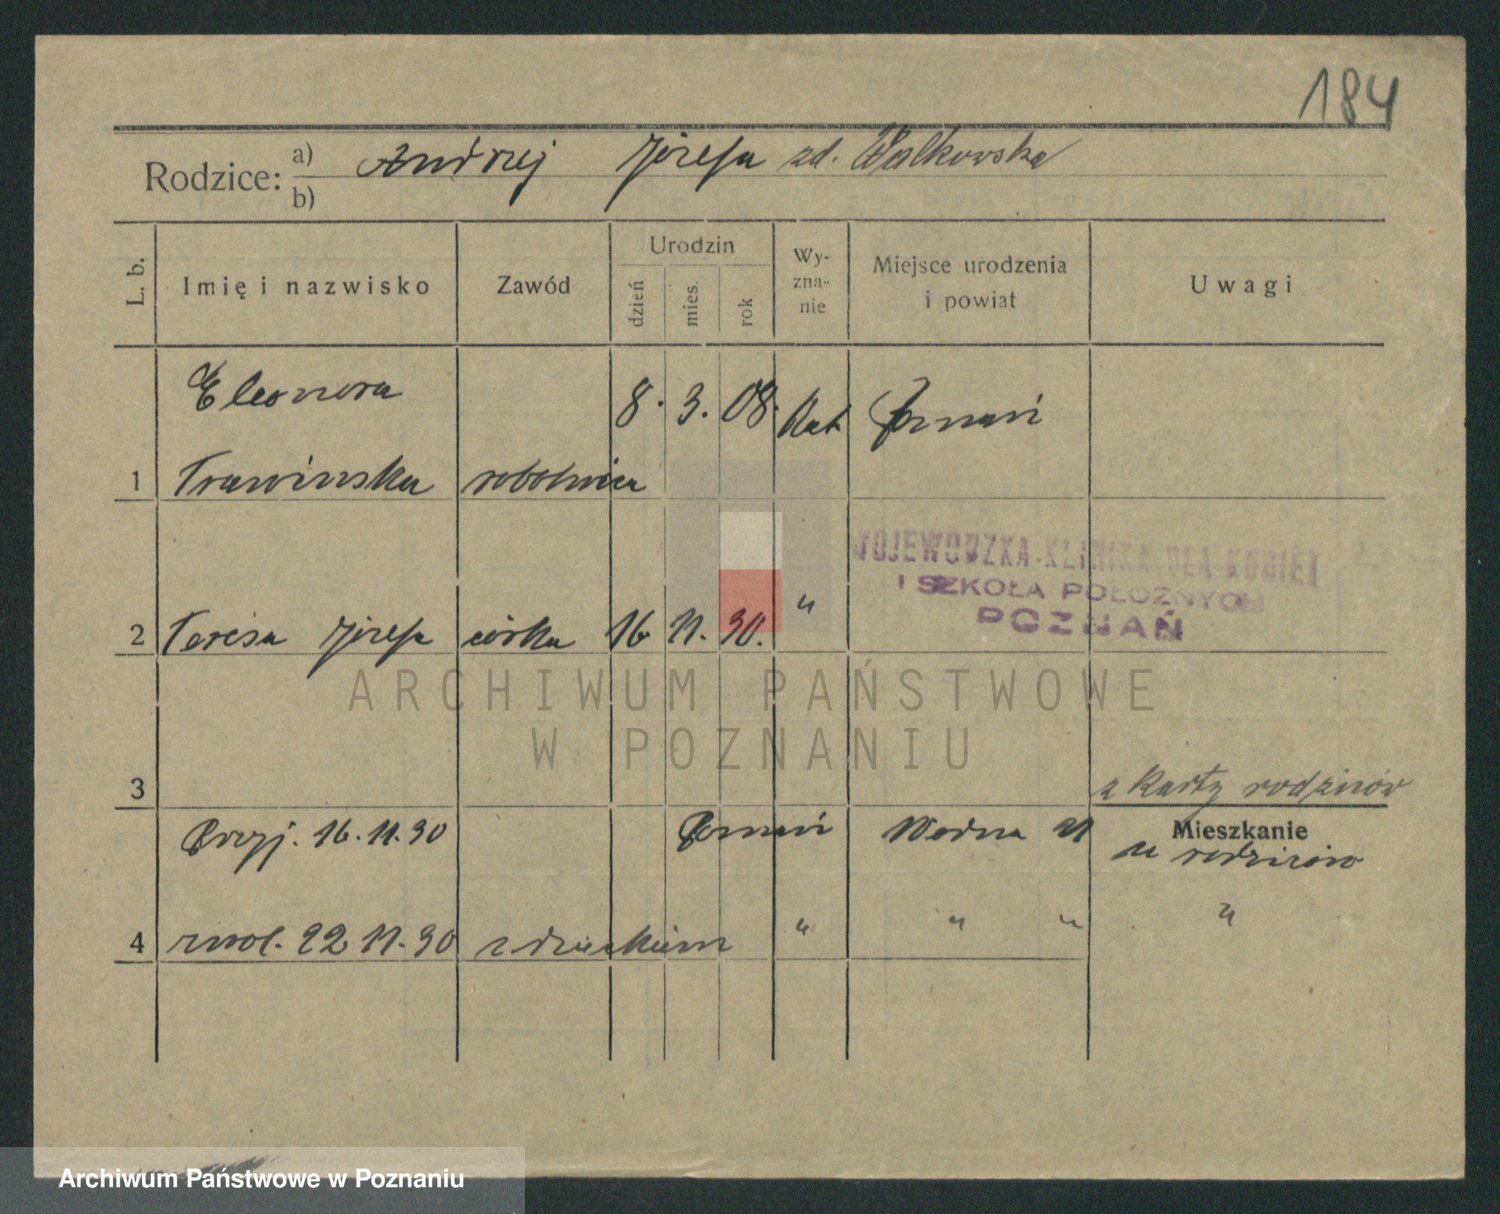 184
Rodzice: a) b) Andrzej Józefa zd. Walkowska
L. b.
Imię i nazwisko
Zawód
Urodzin
dzień
mies.
rok
Wy-
zna-
nie
Miejsce urodzenia
i powiat
Uwagi
Eleonora 8. 3. 08. Kat Poznań
1 Trawinska robotnica
WOJEWÓDZKA KLINIKA DLA KOBIET
I SZKOŁA POŁOŻNYCH
POZNAŃ
2 Teresa Józefa córka 16 11. 30. "
ARCHIWUM PAŃSTWOWE
W POZNANIU
3 z Karty rodziców
Przyj. 16.11.30 Poznań Wodna 21 Mieszkanie
u rodziców
4 zwol. 22 11.30 z dzieckiem " " " "
Archiwum Państwowe w Poznaniu